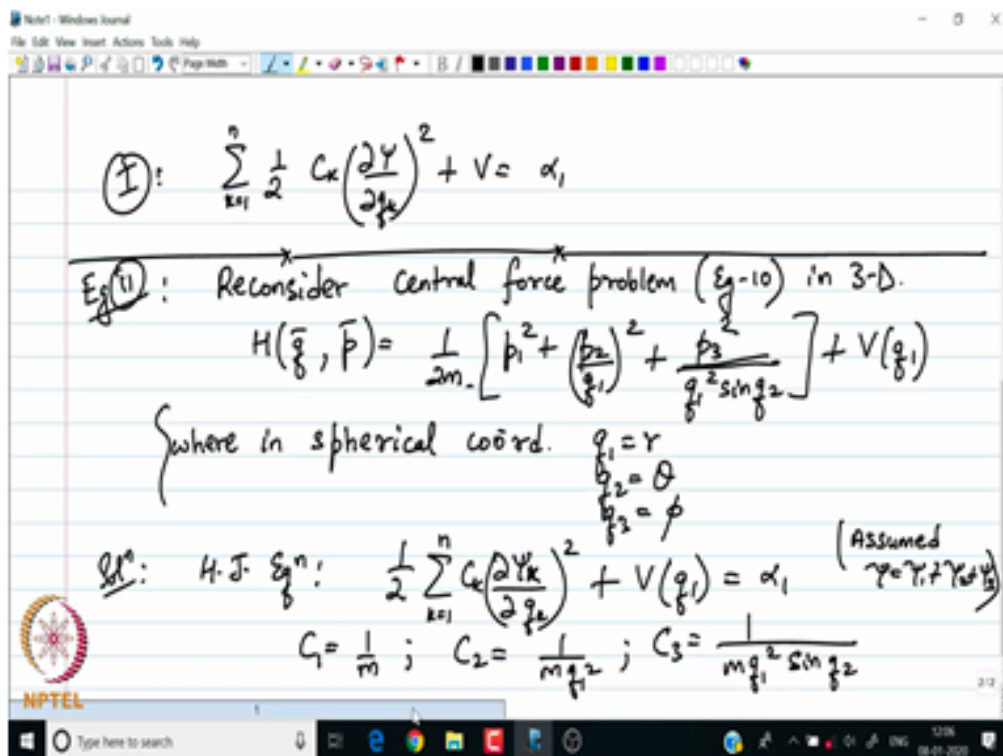 Note1 - Windows Journal
File Edit View Insert Actions Tools Help
Page Width
B I
I: \sum_{k=1}^{n} \frac{1}{2} C_k \left(\frac{\partial \Psi}{\partial q_k}\right)^2 + V = \alpha_1
Eg 11: Reconsider central force problem (Eg-10) in 3-D.
H(\bar{q}, \bar{p}) = \frac{1}{2m} \left[ p_1^2 + \left(\frac{p_2}{q_1}\right)^2 + \frac{p_3^2}{q_1^2 \sin q_2} \right] + V(q_1)
where in spherical coörd. q_1 = r
q_2 = θ
q_3 = φ
Solⁿ: H.J. Eqⁿ: \frac{1}{2} \sum_{k=1}^{n} C_k \left(\frac{\partial \Psi_k}{\partial q_k}\right)^2 + V(q_1) = \alpha_1 (Assumed
Ψ = Ψ_1 + Ψ_2 + Ψ_3)
C_1 = \frac{1}{m} ; C_2 = \frac{1}{m q_1^2} ; C_3 = \frac{1}{m q_1^2 \sin q_2}
NPTEL
2/2
1
Type here to search
ENG
12:06
08-01-2020